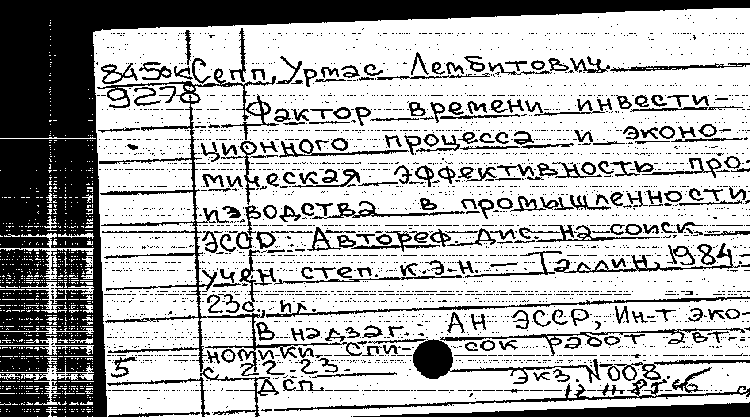 84-5ок Сепп, Урмас Лембитович.
9278
Фактор времени инвести-
ционного процесса и эконо-
мическая эффективность про-
изводства в промышленности
ЭССР: Автореф. дис. на соиск.
учен. степ. к.э.н. — Таллин, 1984.-
23с., ил.
В надзаг.: АН ЭССР, Ин-т эко-
номики. Спи- сок работ авт.:
5 с. 22-23.
Дсп. Экз. №008.